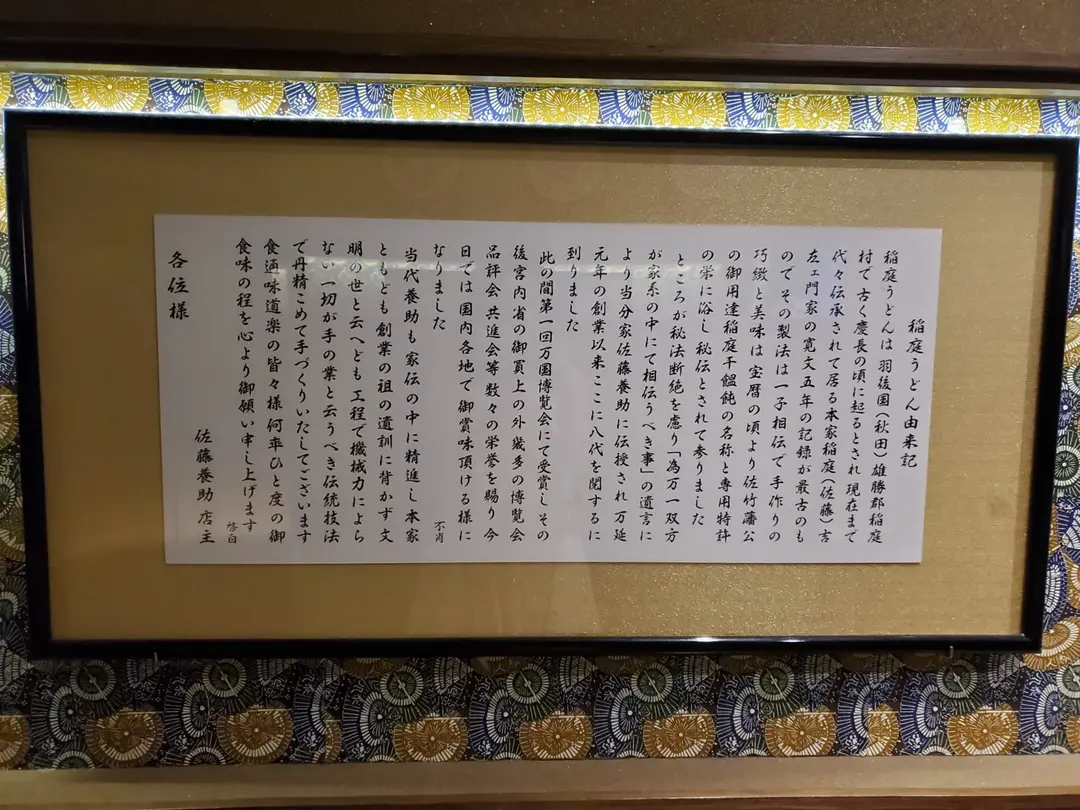 稲庭うどん由来記
稲庭うどんは 羽後国(秋田)雄勝郡稲庭
村で古く慶長の頃に起るとされ 現在まで
代々伝承されて居る本家稲庭(佐藤)吉
左ェ門家の寛文五年の記録が最古のも
のでその製法は一子相伝で 手作りの
巧緻と美味は 宝暦の頃より佐竹藩公
の御用達稲庭干饂飩の名称と専用特許
の栄に浴し 秘伝とされて参りました
ところが秘法断絶を慮り「為万一双方
が家系の中にて相伝うべき事」の遺言に
より当分家佐藤養助に伝授され 万延
元年の創業以来ここに八代を閲するに
到りました
此の間第一回万国博覧会にて受賞しその
後宮内省の御買上の外幾多の博覧会
品評会 共進会等 数々の栄誉を賜り 今
日では 国内各地で 御賞味頂ける様に
なりました
不肖
当代養助も 家伝の中に精進し 本家
ともども創業の祖の遺訓に背かず 文
明の世と云へども 工程で機械力によら
ない 一切が手の業と云うべき伝統技法
で丹精こめて手づくりいたしてございます
食通味道楽の皆々様何卒ひと度の御
食味の程を心より御願い申し上げます
啓白
佐藤養助 店主
各位様